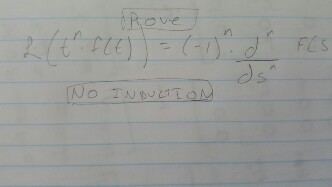 Prove
L(tⁿ · f(t)) = (-1)ⁿ · dⁿ/dsⁿ F(s
NO INDUCTION